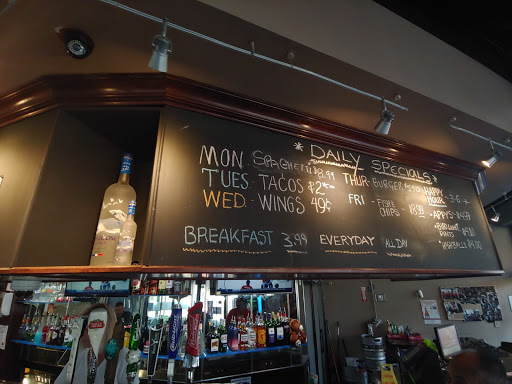 * DAILY SPECIALS *
MON SPAGHETTI
TUES. TACOS $2
WED. WINGS 49¢
THUR- BURGER
FRI - FISH &
CHIPS
HAPPY
HOUR 3-6
- APPYS
HIGHBALLS
BREAKFAST 3.99 EVERYDAY ALL DAY